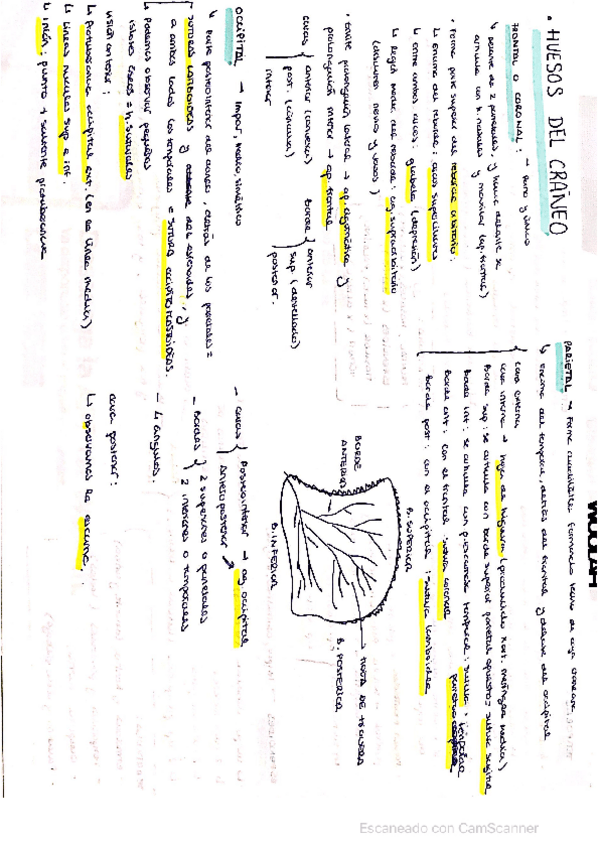 • HUESOS DEL CRÁNEO
FRONTAL O CORONAL: → Plano y único
↳ delante de 2 parietales, y hueso delante se
articula con h. nasales y maxilar (ap. frontal)
• Forma parte superior de reborde orbitario.
↳ Encima del reborde: arcos superciliares
↳ entre ambos arcos: glabela (depresión)
↳ Región medial del reborde: ag. supraorbitario
(discurren nervios y vasos)
• Existe prolongación lateral → ap. cigomática y
prolongación inferior → ap. frontal
caras
anterior (convexa)
post. (cóncava)
inferior
borde
anterior
sup. (dentellado)
posterior.
OCCIPITAL → Impar, medio, simétrico
↳ Parte posteroinferior del cráneo, detrás de los parietales =
suturas lambdoideas y del esfenoides, y
a ambos lados los temporales = sutura occipitomastoidea.
↳ Podemos observar pequeños
islotes óseos = h. suturales
visión anterior:
↳ Protuberancia occipital ext. (en la línea media)
↳ Líneas nucales sup e inf.
↳ Inión: punto + saliente
- caras
Posteroinferior → ag. occipital
Anterosuperior
- Bordes
2 superiores o parietales
2 inferiores o temporales
- 4 ángulos.
cara posterior:
↳ observamos la escama.
PARIETAL → Forma cuadrilátera formando techo de caja craneal.
↳ encima del temporal, detrás del frontal y delante del occipital
cara externa
cara interna → hoja de higuera (producido x art. meníngea media)
Borde sup: se articula con borde superior parietal opuesto = sutura sagital
Borde inf: se articula con temporal: sutura
Borde ant: con el frontal: sutura coronal
Borde post: con el occipital: sutura lambdoidea
B. SUPERIOR
BORDE
ANTERIOR
B. INFERIOR
HOJA DE HIGUERA
B. POSTERIOR
WUOLAH
Escaneado con CamScanner